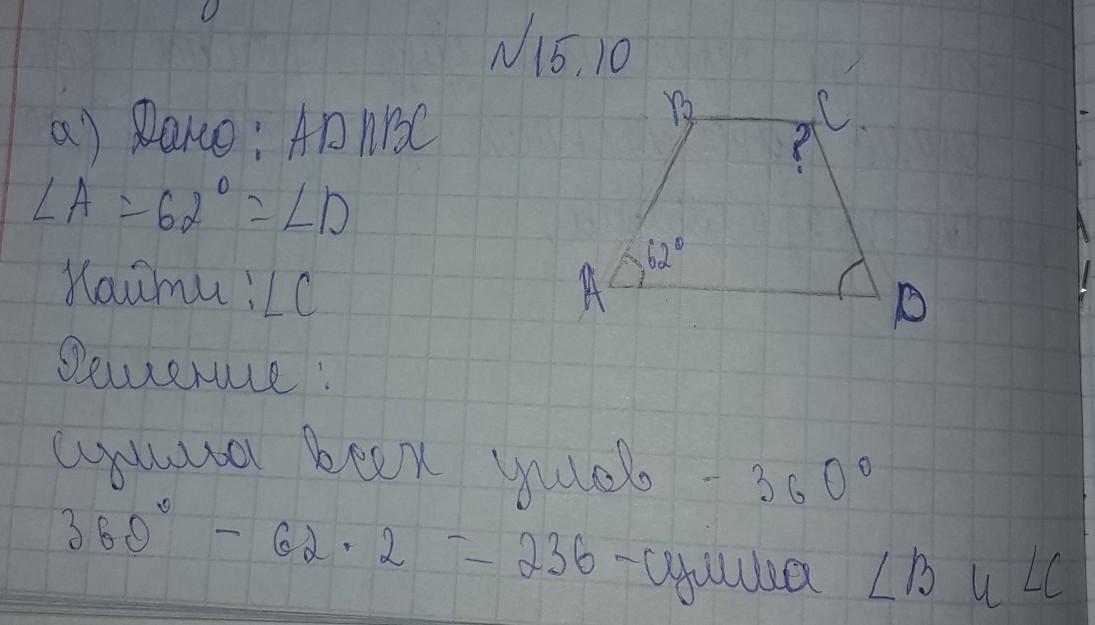 №15.10
а) Дано: AD || BC
∠A = 62° = ∠D
Найти: ∠C
Решение:
сумма всех углов - 360°
360° - 62 · 2 = 236 - сумма ∠B и ∠C
B C
?
62°
A D